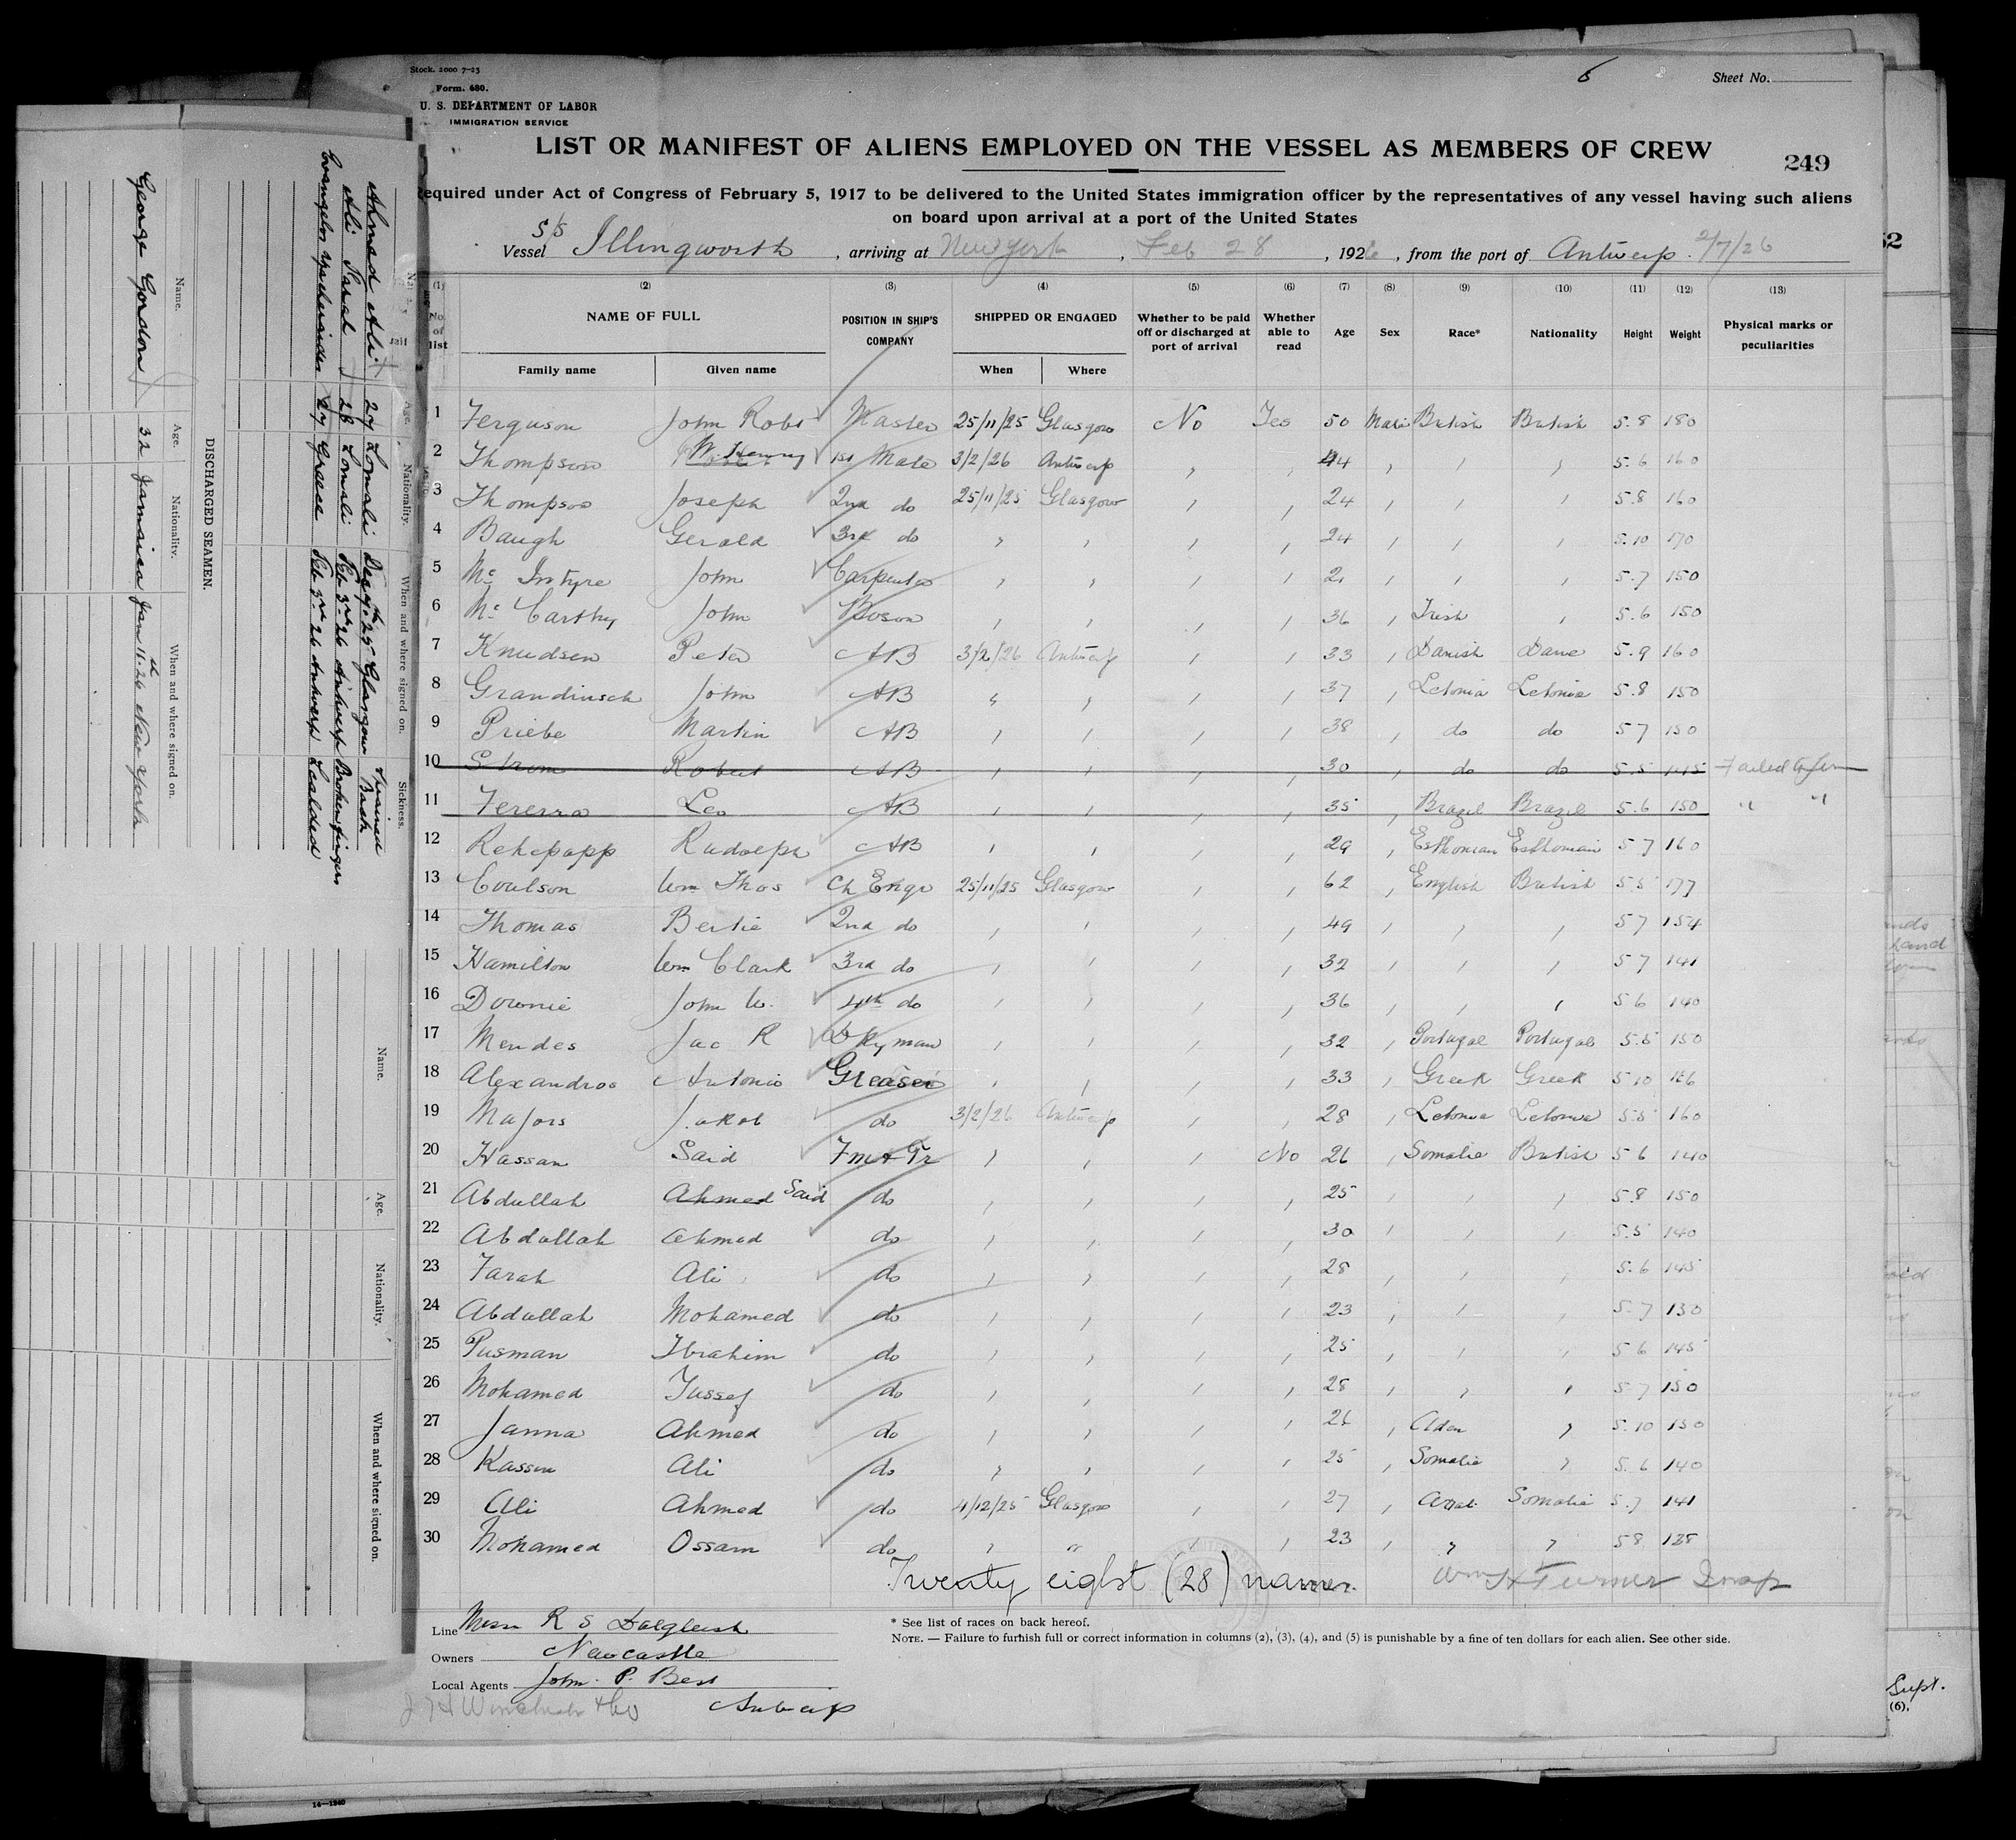 Stock. 2000 7-25
Form. 680.
U. S. DEPARTMENT OF LABOR
IMMIGRATION SERVICE
6
Sheet No.
LIST OR MANIFEST OF ALIENS EMPLOYED ON THE VESSEL AS MEMBERS OF CREW
249
Required under Act of Congress of February 5, 1917 to be delivered to the United States immigration officer by the representatives of any vessel having such aliens
on board upon arrival at a port of the United States
Vessel S/S Illingworth , arriving at New York , Feb 28 , 1926 , from the port of Antwerp. 2/7/26
(1) (2) (3) (4) (5) (6) (7) (8) (9) (10) (11) (12) (13)
No. of list NAME OF FULL POSITION IN SHIP'S COMPANY SHIPPED OR ENGAGED Whether to be paid off or discharged at port of arrival Whether able to read Age Sex Race* Nationality Height Weight Physical marks or peculiarities
Family name Given name When Where
1 Ferguson John Robt Master 25/11/25 Glasgow No Yes 50 Male British British 5.8 180
2 Thompson W. Henry 1st Mate 3/2/26 Antwerp , , 44 , , , 5.6 160
3 Thompson Joseph 2nd do 25/11/25 Glasgow , , 24 , , , 5.8 160
4 Baugh Gerald 3rd do , , , , 24 , , , 5.10 170
5 Mc Intyre John Carpenter , , , , 2, , , , 5.7 150
6 Mc Carthy John Boson , , , , 36 , Irish , 5.6 150
7 Knudsen Peter AB 3/2/26 Antwerp , , 33 , Danish Dane 5.9 160
8 Grandinsch John AB " , , , 37 , Letonia Letonia 5.8 150
9 Priebe Martin AB , , , , 38 , do do 5 7 150
10 Strom Robert AB , , , , 30 , do do 5.5 145 Failed to join
11 Fererra Leo AB , , , , 35 , Brazil Brazil 5.6 150 " "
12 Rekepapp Rudolph AB , , , , 29 , Esthonian Esthonian 5 7 160
13 Coulson Wm Thos Ch Engr 25/11/25 Glasgow , , 62 , English British 5.5 177
14 Thomas Bertie 2nd do , , , , 49 , , , 5 7 154
15 Hamilton Wm Clark 3rd do , , , , 32 , , , 5 7 141
16 Downie John W. 4th do , , , , 36 , , , 5 6 140
17 Mendes Jac R Dkyman , , , , 32 , Portugal Portugal 5.5 150
18 Alexandros Antonio Greaser , , , , 33 , Greek Greek 5 10 126
19 Majors Jakob do 3/2/26 Antwerp , , 28 , Letonia Letonia 5.5 160
20 Hassan Said Fm & Tr , , , No 26 , Somalie British 5 6 140
21 Abdullah Ahmed Said do , , , , 25 , , , 5.8 150
22 Abdullah Ahmed do , , , , 30 , , , 5.5 140
23 Farah Ali do , , , , 28 , , , 5.6 145
24 Abdullah Mohamed do , , , , 23 , , , 5.7 130
25 Pusman Ibrahim do , , , , 25 , , , 5 6 145
26 Mohamed Jussef do , , , , 28 , , , 5 7 150
27 Janna Ahmed do , , , , 26 , Aden , 5.10 150
28 Kassim Ali do , , , , 25 , Somalie , 5.6 140
29 Ali Ahmed do 4/12/25 Glasgow , , 27 , Arab Somalie 5.7 141
30 Mohamed Ossam do , " , , 23 , , , 5 8 138
Twenty eight (28) names. Wm H Turner Insp
Line Messrs R S Dalgliesh
Owners Newcastle
Local Agents John. P. Best
Antwerp
J H Winchester & Co
* See list of races on back hereof.
NOTE. — Failure to furnish full or correct information in columns (2), (3), (4), and (5) is punishable by a fine of ten dollars for each alien. See other side.
14—1240
Age. Nationality. When and where signed on. Sickness.
Ahmed Ali 27 Somali Decr 4th 25 Glasgow Strained Back
Ali Farah 28 Somali Feb 3rd 26 Antwerp Broken fingers
Evangelos 27 Greece Feb 3rd 26 Antwerp Scalded
DISCHARGED SEAMEN.
Name. Age. Nationality. When and where signed on.
George Gordon 32 Jamaica Jan 11th 26 New York
Name. Age. Nationality. When and where signed on.
52
Supt.
(6),